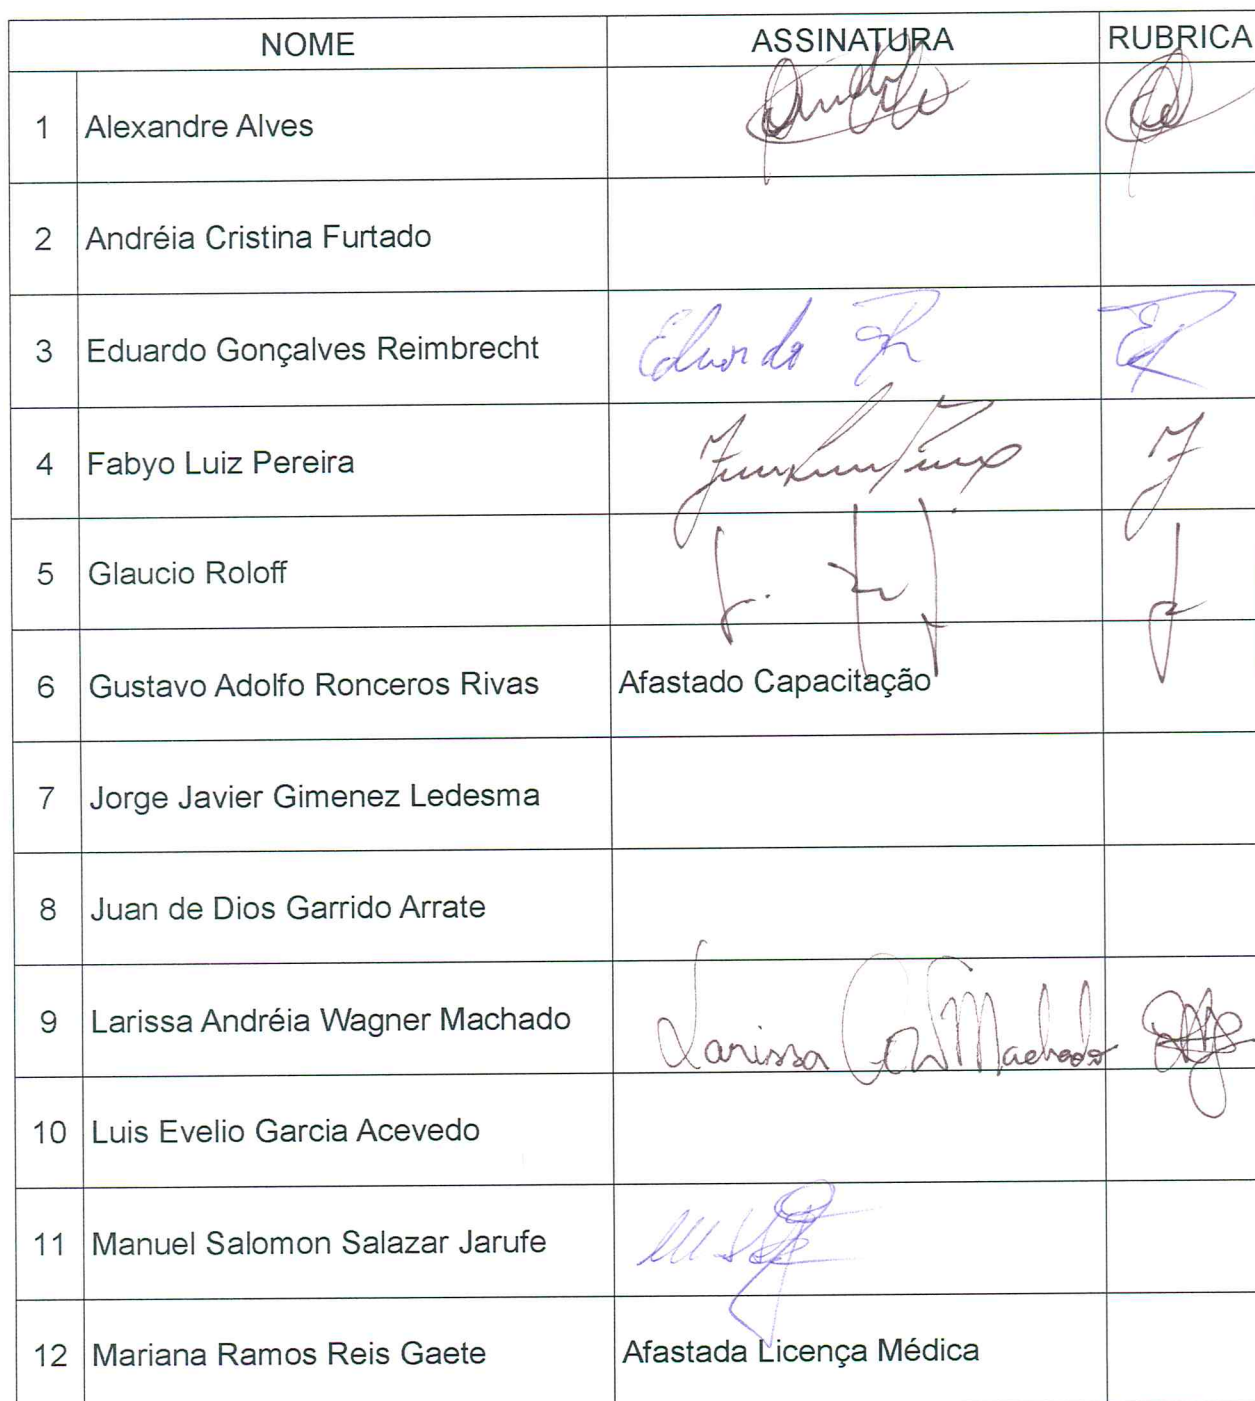 NOME ASSINATURA RUBRICA
1 Alexandre Alves
2 Andréia Cristina Furtado
3 Eduardo Gonçalves Reimbrecht Eduardo ER
4 Fabyo Luiz Pereira
5 Glaucio Roloff
6 Gustavo Adolfo Ronceros Rivas Afastado Capacitação
7 Jorge Javier Gimenez Ledesma
8 Juan de Dios Garrido Arrate
9 Larissa Andréia Wagner Machado Larissa AW Machado
10 Luis Evelio Garcia Acevedo
11 Manuel Salomon Salazar Jarufe
12 Mariana Ramos Reis Gaete Afastada Licença Médica